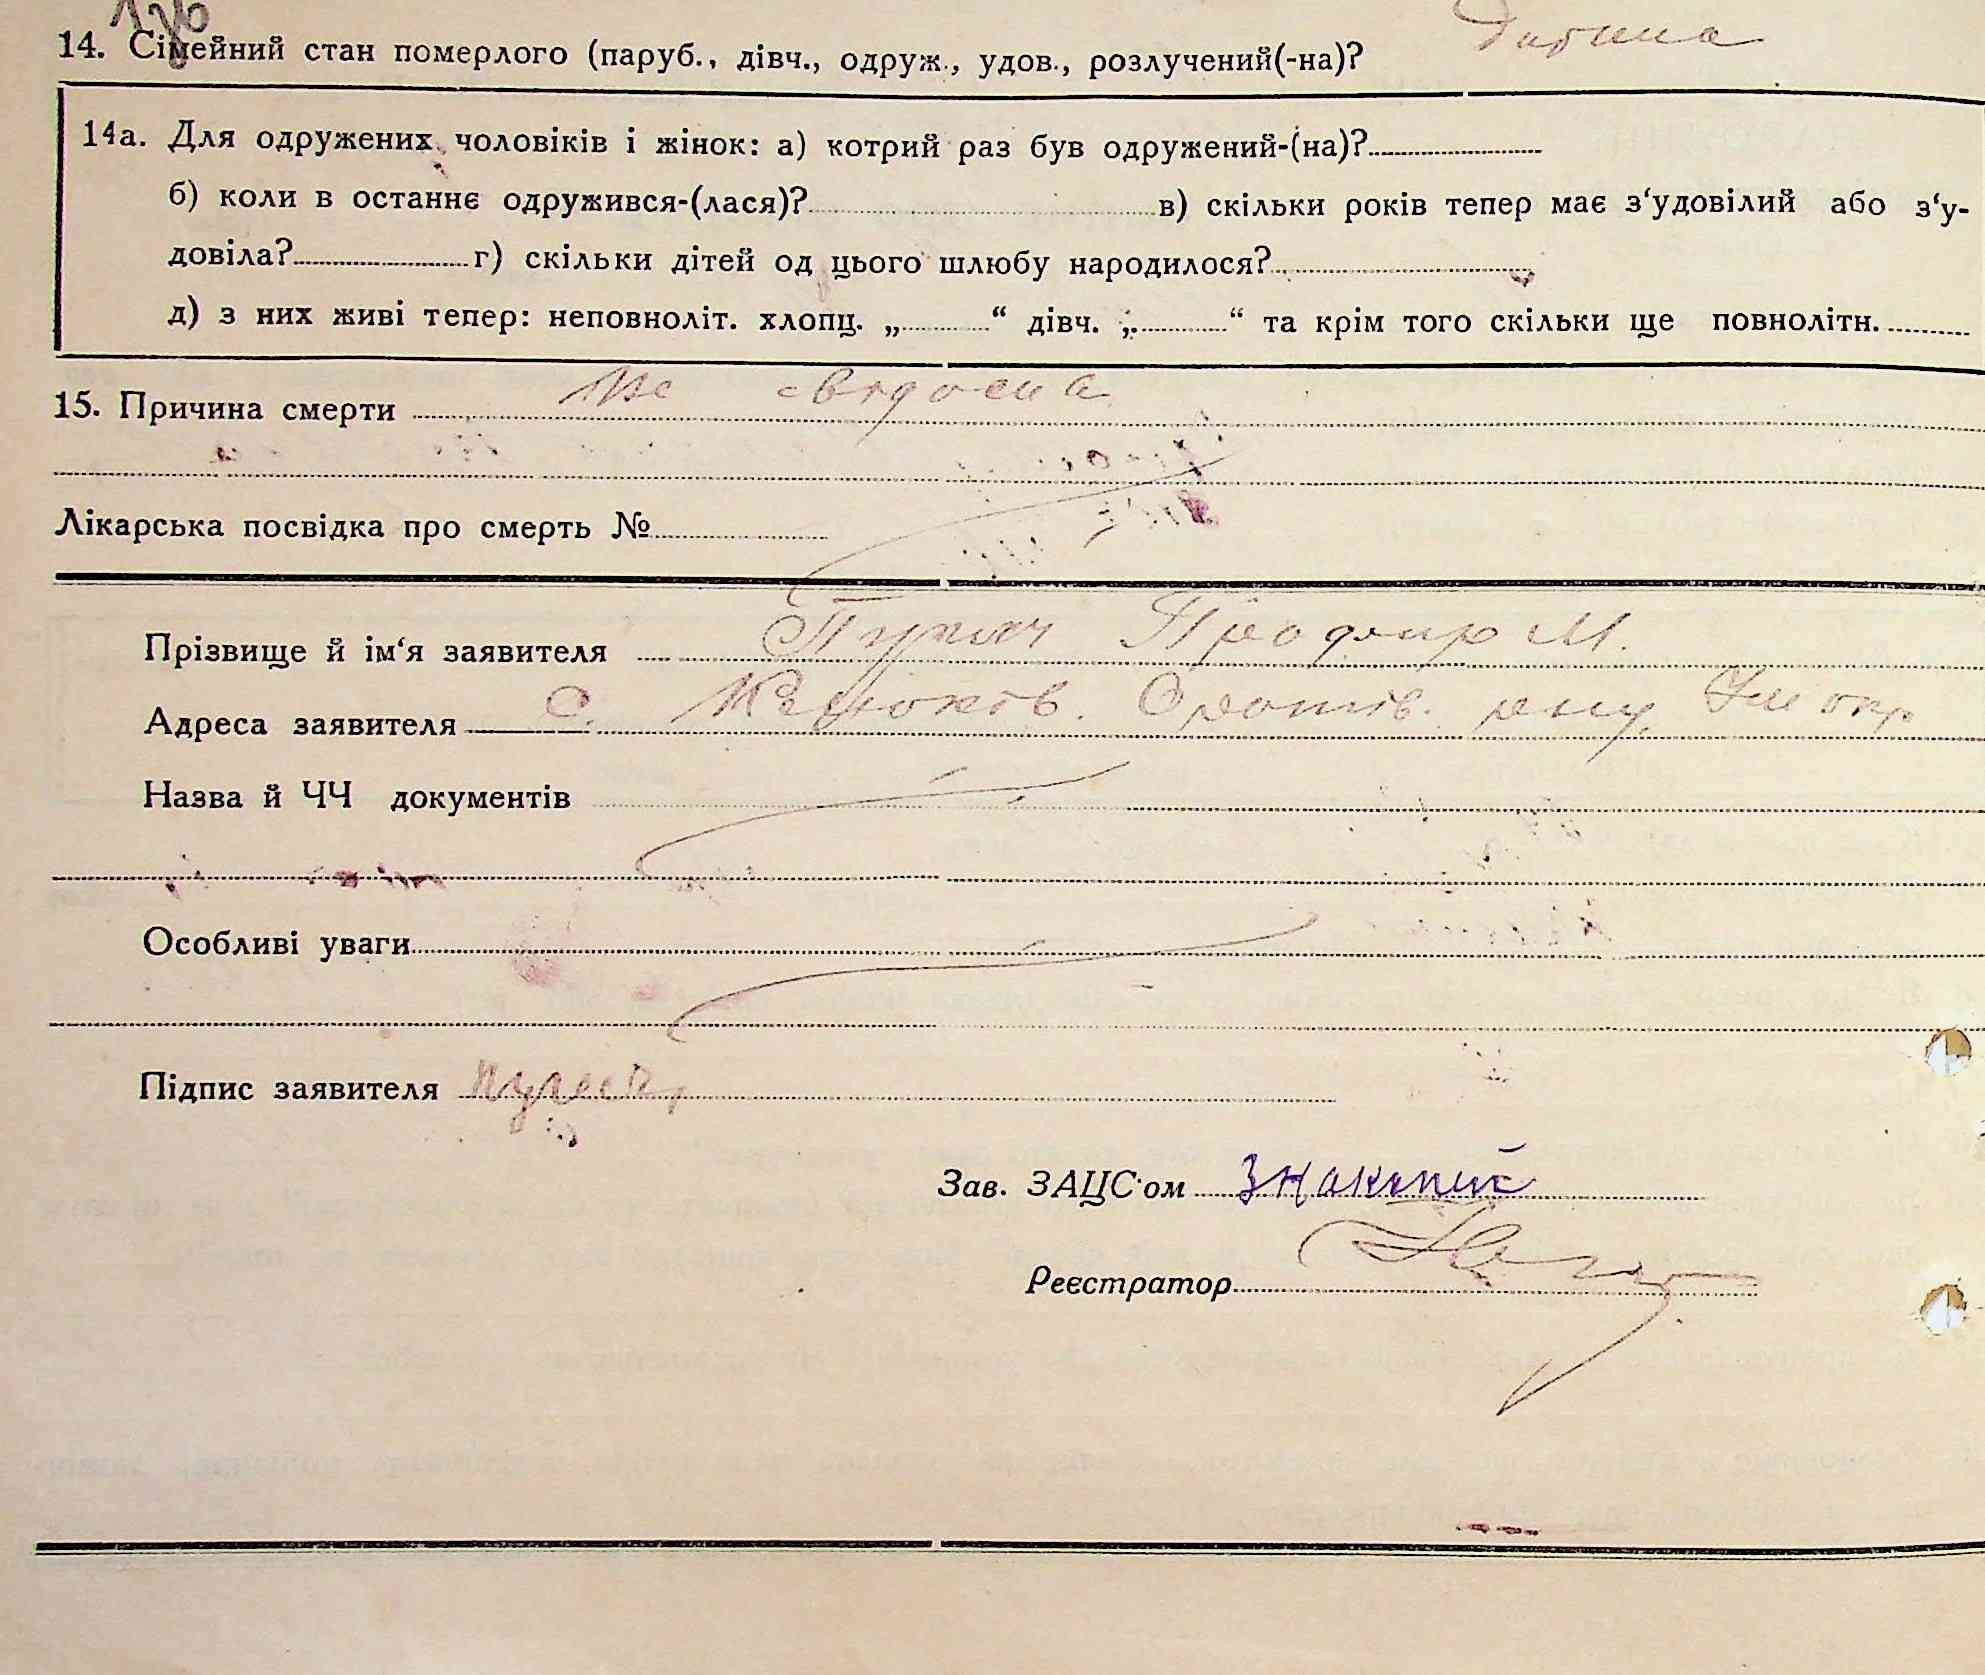 14. Сімейний стан померлого (паруб., дівч., одруж., удов., розлучений(-на)? Дитина
14а. Для одружених чоловіків і жінок: а) котрий раз був одружений-(на)?
б) коли в останнє одружився-(лася)? в) скільки років тепер має з‘удовілий або з‘у-
довіла? г) скільки дітей од цього шлюбу народилося?
д) з них живі тепер: неповноліт. хлопц. „ “ дівч. „ “ та крім того скільки ще повнолітн.
15. Причина смерти Не свідома
Лікарська посвідка про смерть №
Прізвище й ім‘я заявителя М.
Адреса заявителя с. Оратів. рну, Ум окр
Назва й ЧЧ документів
Особливі уваги
Підпис заявителя
Зав. ЗАЦС‘ом
Реєстратор